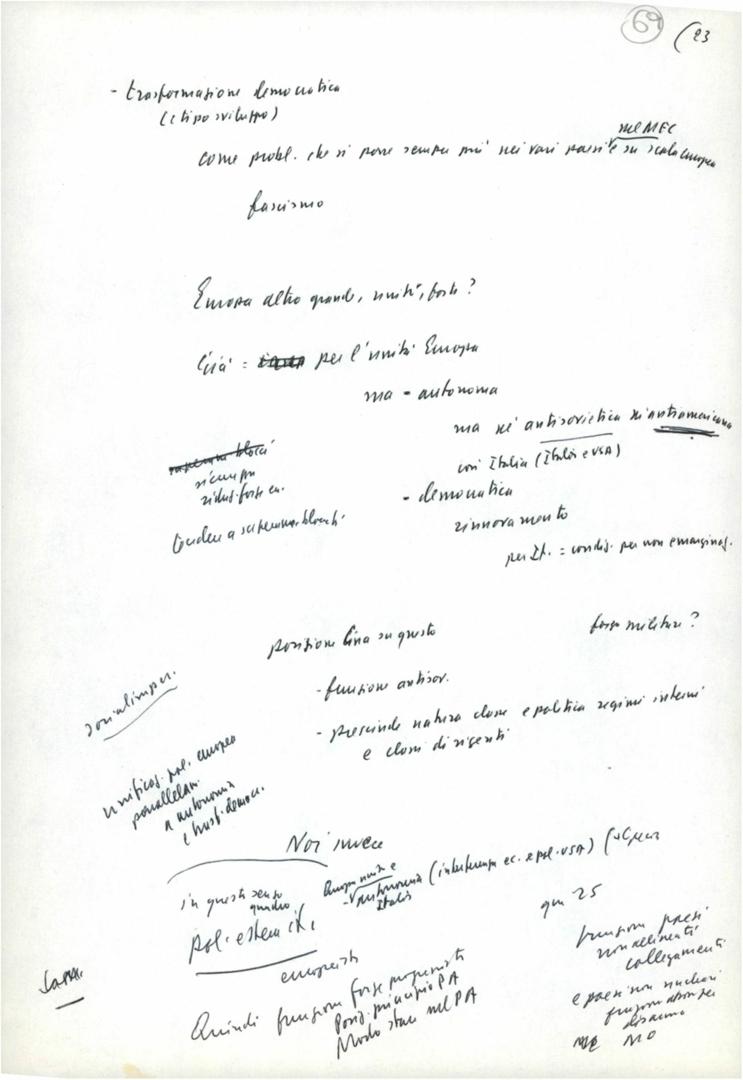 69
(23
- trasformazione democratica
(e tipo sviluppo)
nel MEC
come probl. che si pone sempre più nei vari paesi e su scala europea
fascismo
Europa altro grande, unità, forte?
Cina = per l'unità Europa
ma - autonoma
ma né antisovietica né antiamericana
con Italia (Italia e USA)
superam. blocchi
sicurezza
riduz. forze ar.
tendere a superam. blocchi
- democratica
rinnovamento
per It. = condiz. per non emarginaz.
posizione Cina su questo
forza militare?
- funzione antisov.
- prescinde natura classe e politica regimi interni
e classi dirigenti
socialimper.
unificaz. pol. europea
parallelam.
a autonomia
e trasf. democr.
Noi invece
in questo senso
quadro
pol. estera it.
Europa unita e
- autonomia (interferenze ec. e pol. USA)
Italia
europeista
gen 25
funzioni paesi
non allineati
collegamenti
e paesi non nucleari
funzioni
disarmo
MO
Quindi funzione forze progressiste
Posiz. principio PA
Modo stare nel PA